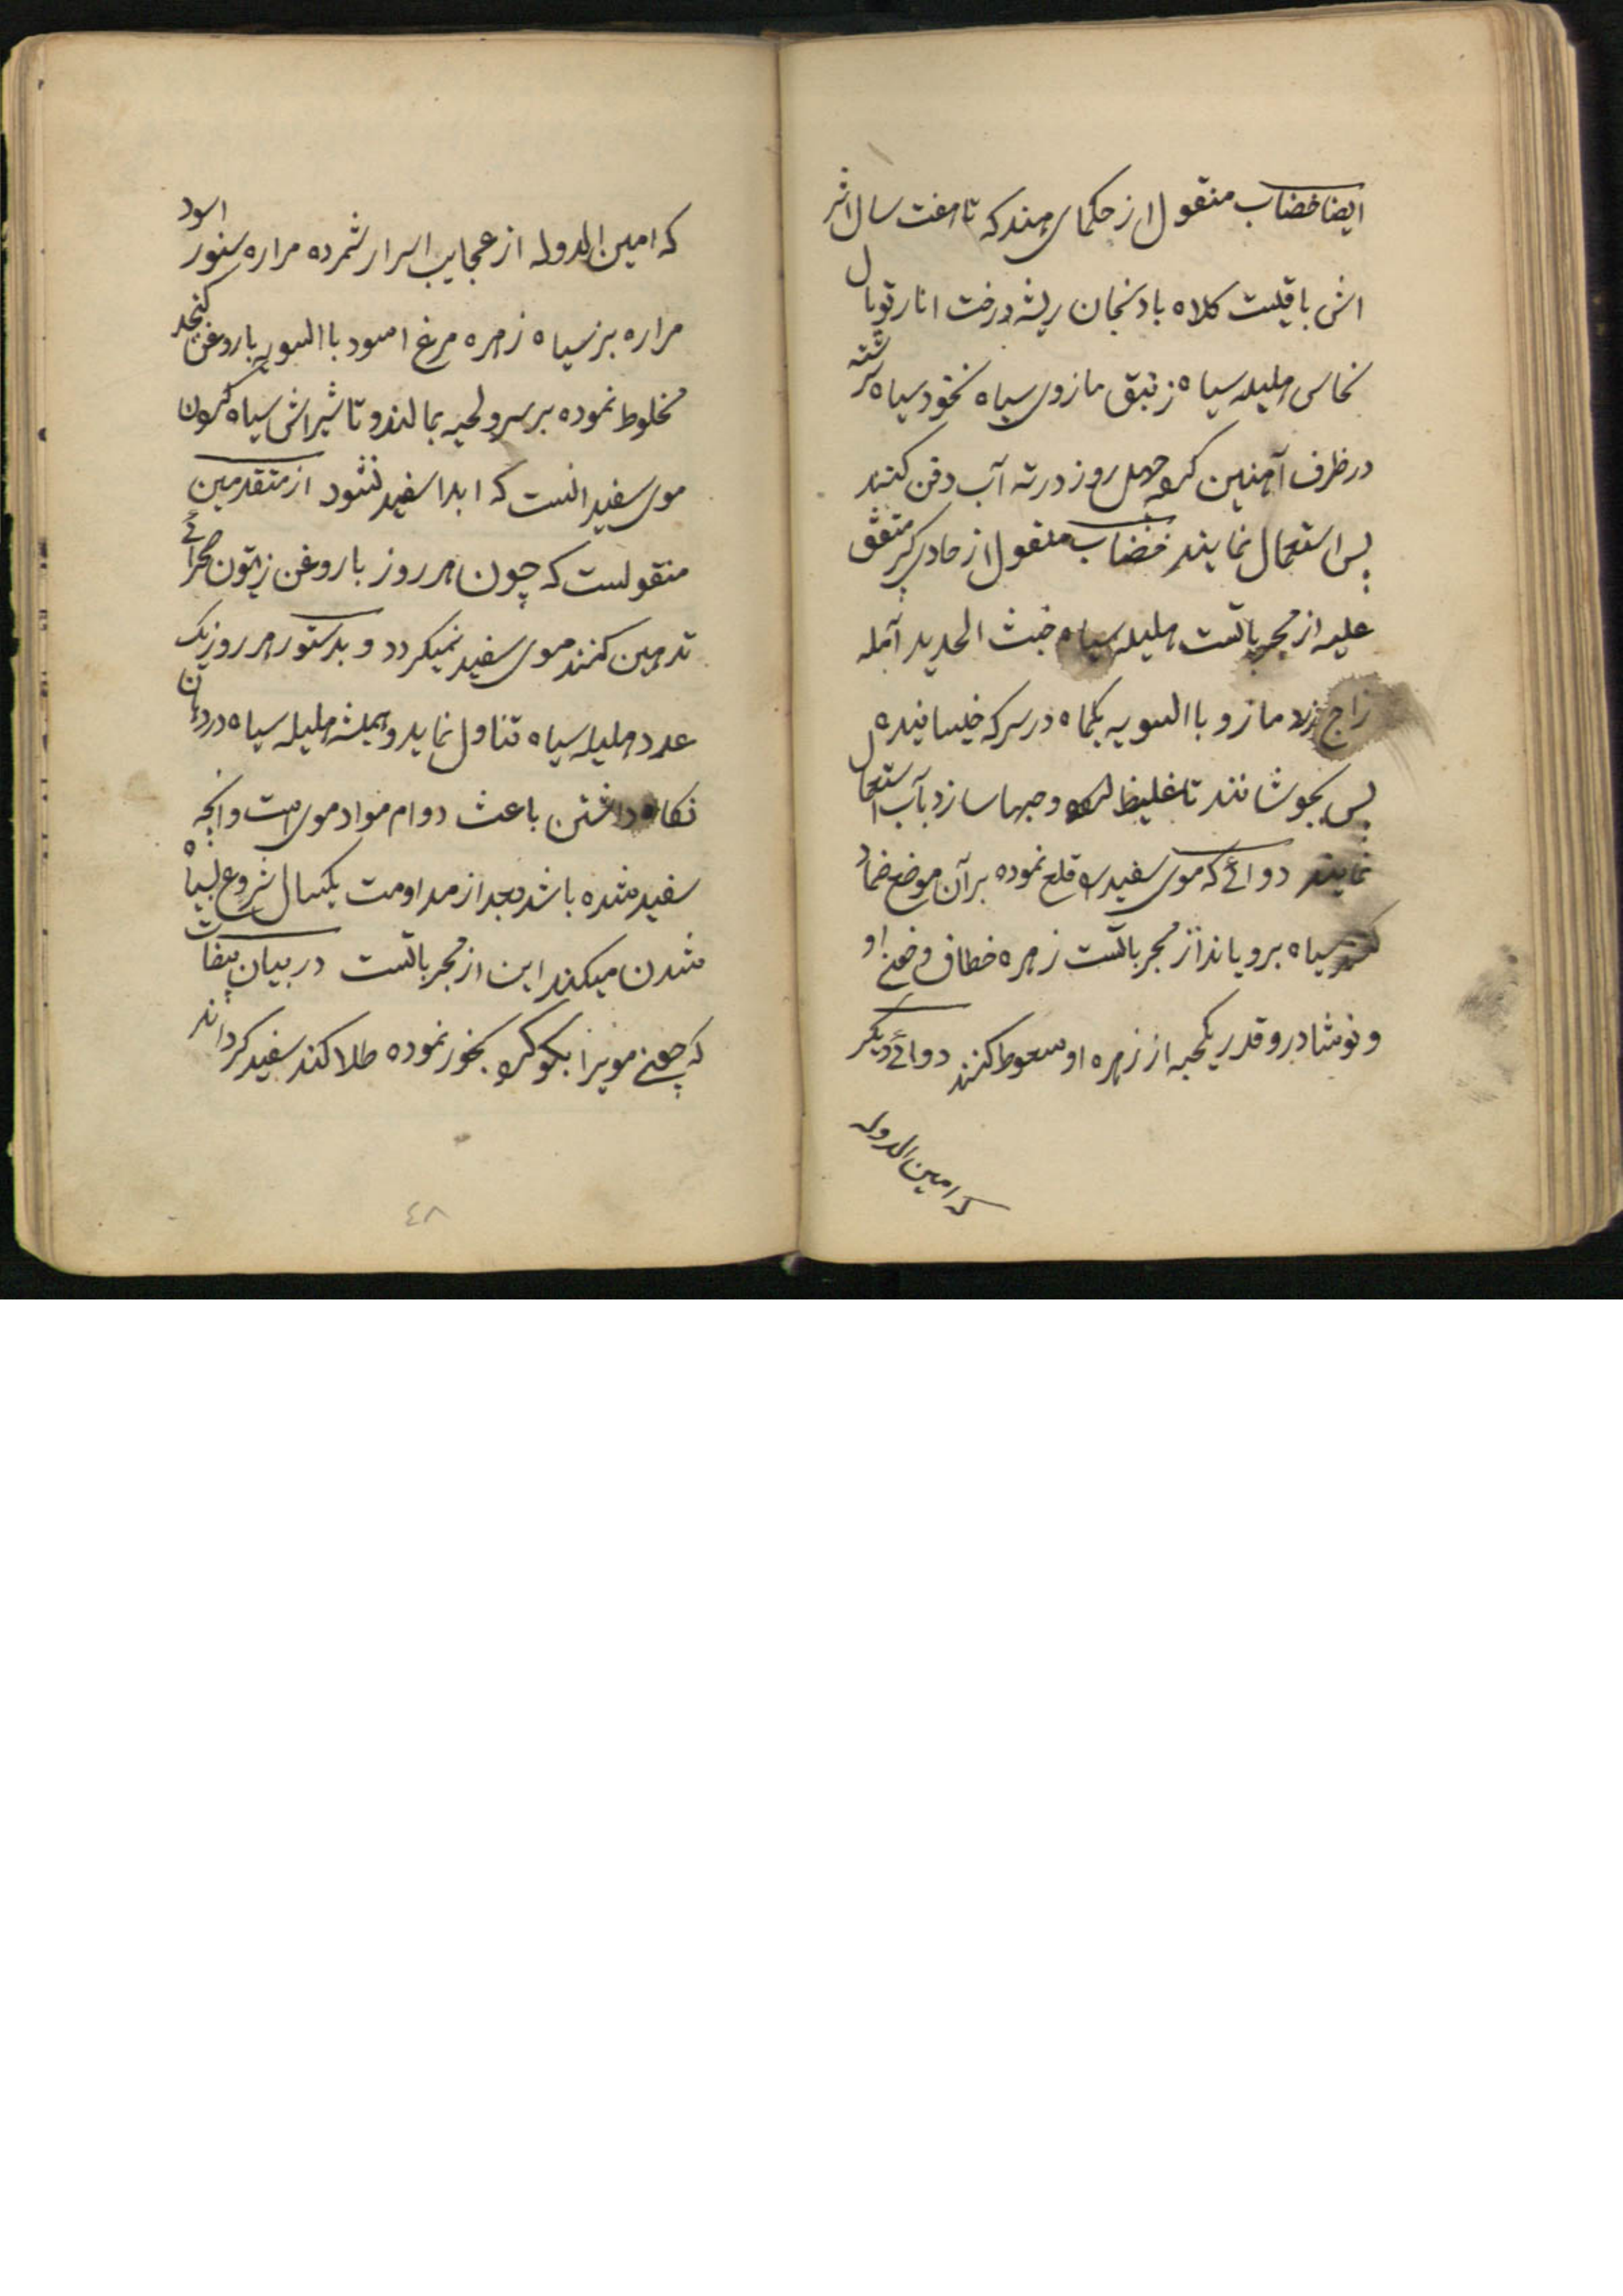 ایضا خضاب منقول از حکمای هند که تا هفت سال اثر
اش باقیست کلاه بادنجان ریشه درخت انار توبال
نحاس هلیله سیاه زیبق مازوی سیاه نخود سیاه سرشته
در ظرف آهنین کرده چهل روز در ته آب دفن کنند
پس استعمال نمایند خضاب منقول از حاوی کبیر متفق
علیه از مجرباتست هلیله سیاه خبث الحدید آمله
زاج زرد مازو بالسویه یکماه در سرکه خیسانیده
پس بجوشانند تا غلیظ شود و حبها سازد بآب استعمال
نمایند دوائے که موی سفید را قلع نموده بر آن موضع ضماد
کنند سیاه برویاند از مجرباتست زهره خطاف و خون او
و نوشادر و قدر یکحبه از زهره او سعوط کنند دوائے دیگر
که امین الدوله
که امین الدوله از عجایب اسرار شمرده مراره سنور اسود
مراره بز سیاه زهره مرغ اسود بالسویه با روغن کنجد
مخلوط نموده بر سر و لحیه بمالند و تاثیراش سیاه کردن
موی سفید انست که ابدا سفید نشود از متقدمین
منقولست که چون هر روز با روغن زیتون صحرائے
تدهین کنند موی سفید نمیکردد و بدستور هر روز یک
عدد هلیله سیاه تناول نماید و همیشه هلیله سیاه در دهان
نکاه داشتن باعث دوام مواد موی است و انچه
سفید شده باشد بعد از مداومت یکسال شروع بسیاه
شدن میکند این از مجرباتست در بیان مبیضات
که چون مویرا بکوکرد بخور نموده طلا کند سفید کرداند
٤٨